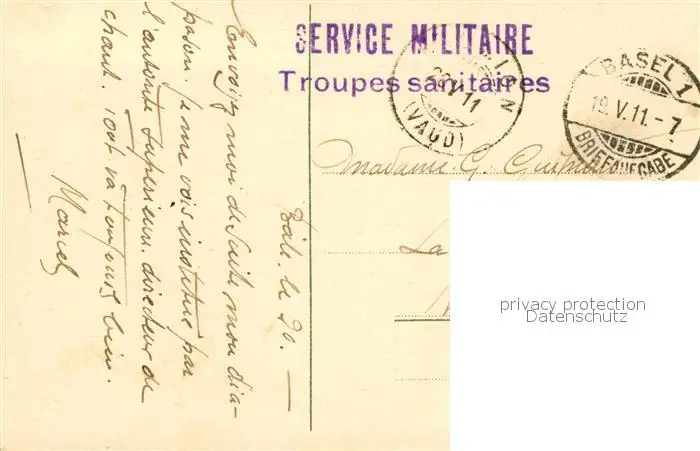 SERVICE MILITAIRE
Troupes sanitaires
(VAUD)
BASEL 1
19.V.11.-7
BRIEFAUFGABE
Madame G.
La
privacy protection
Datenschutz
Bâle. le 20.
Envoyez moi de suite, mon dia-
pason. Je me vois institué par
l'autorité supérieure. directeur de
chant. Tout va toujours bien.
Marcel